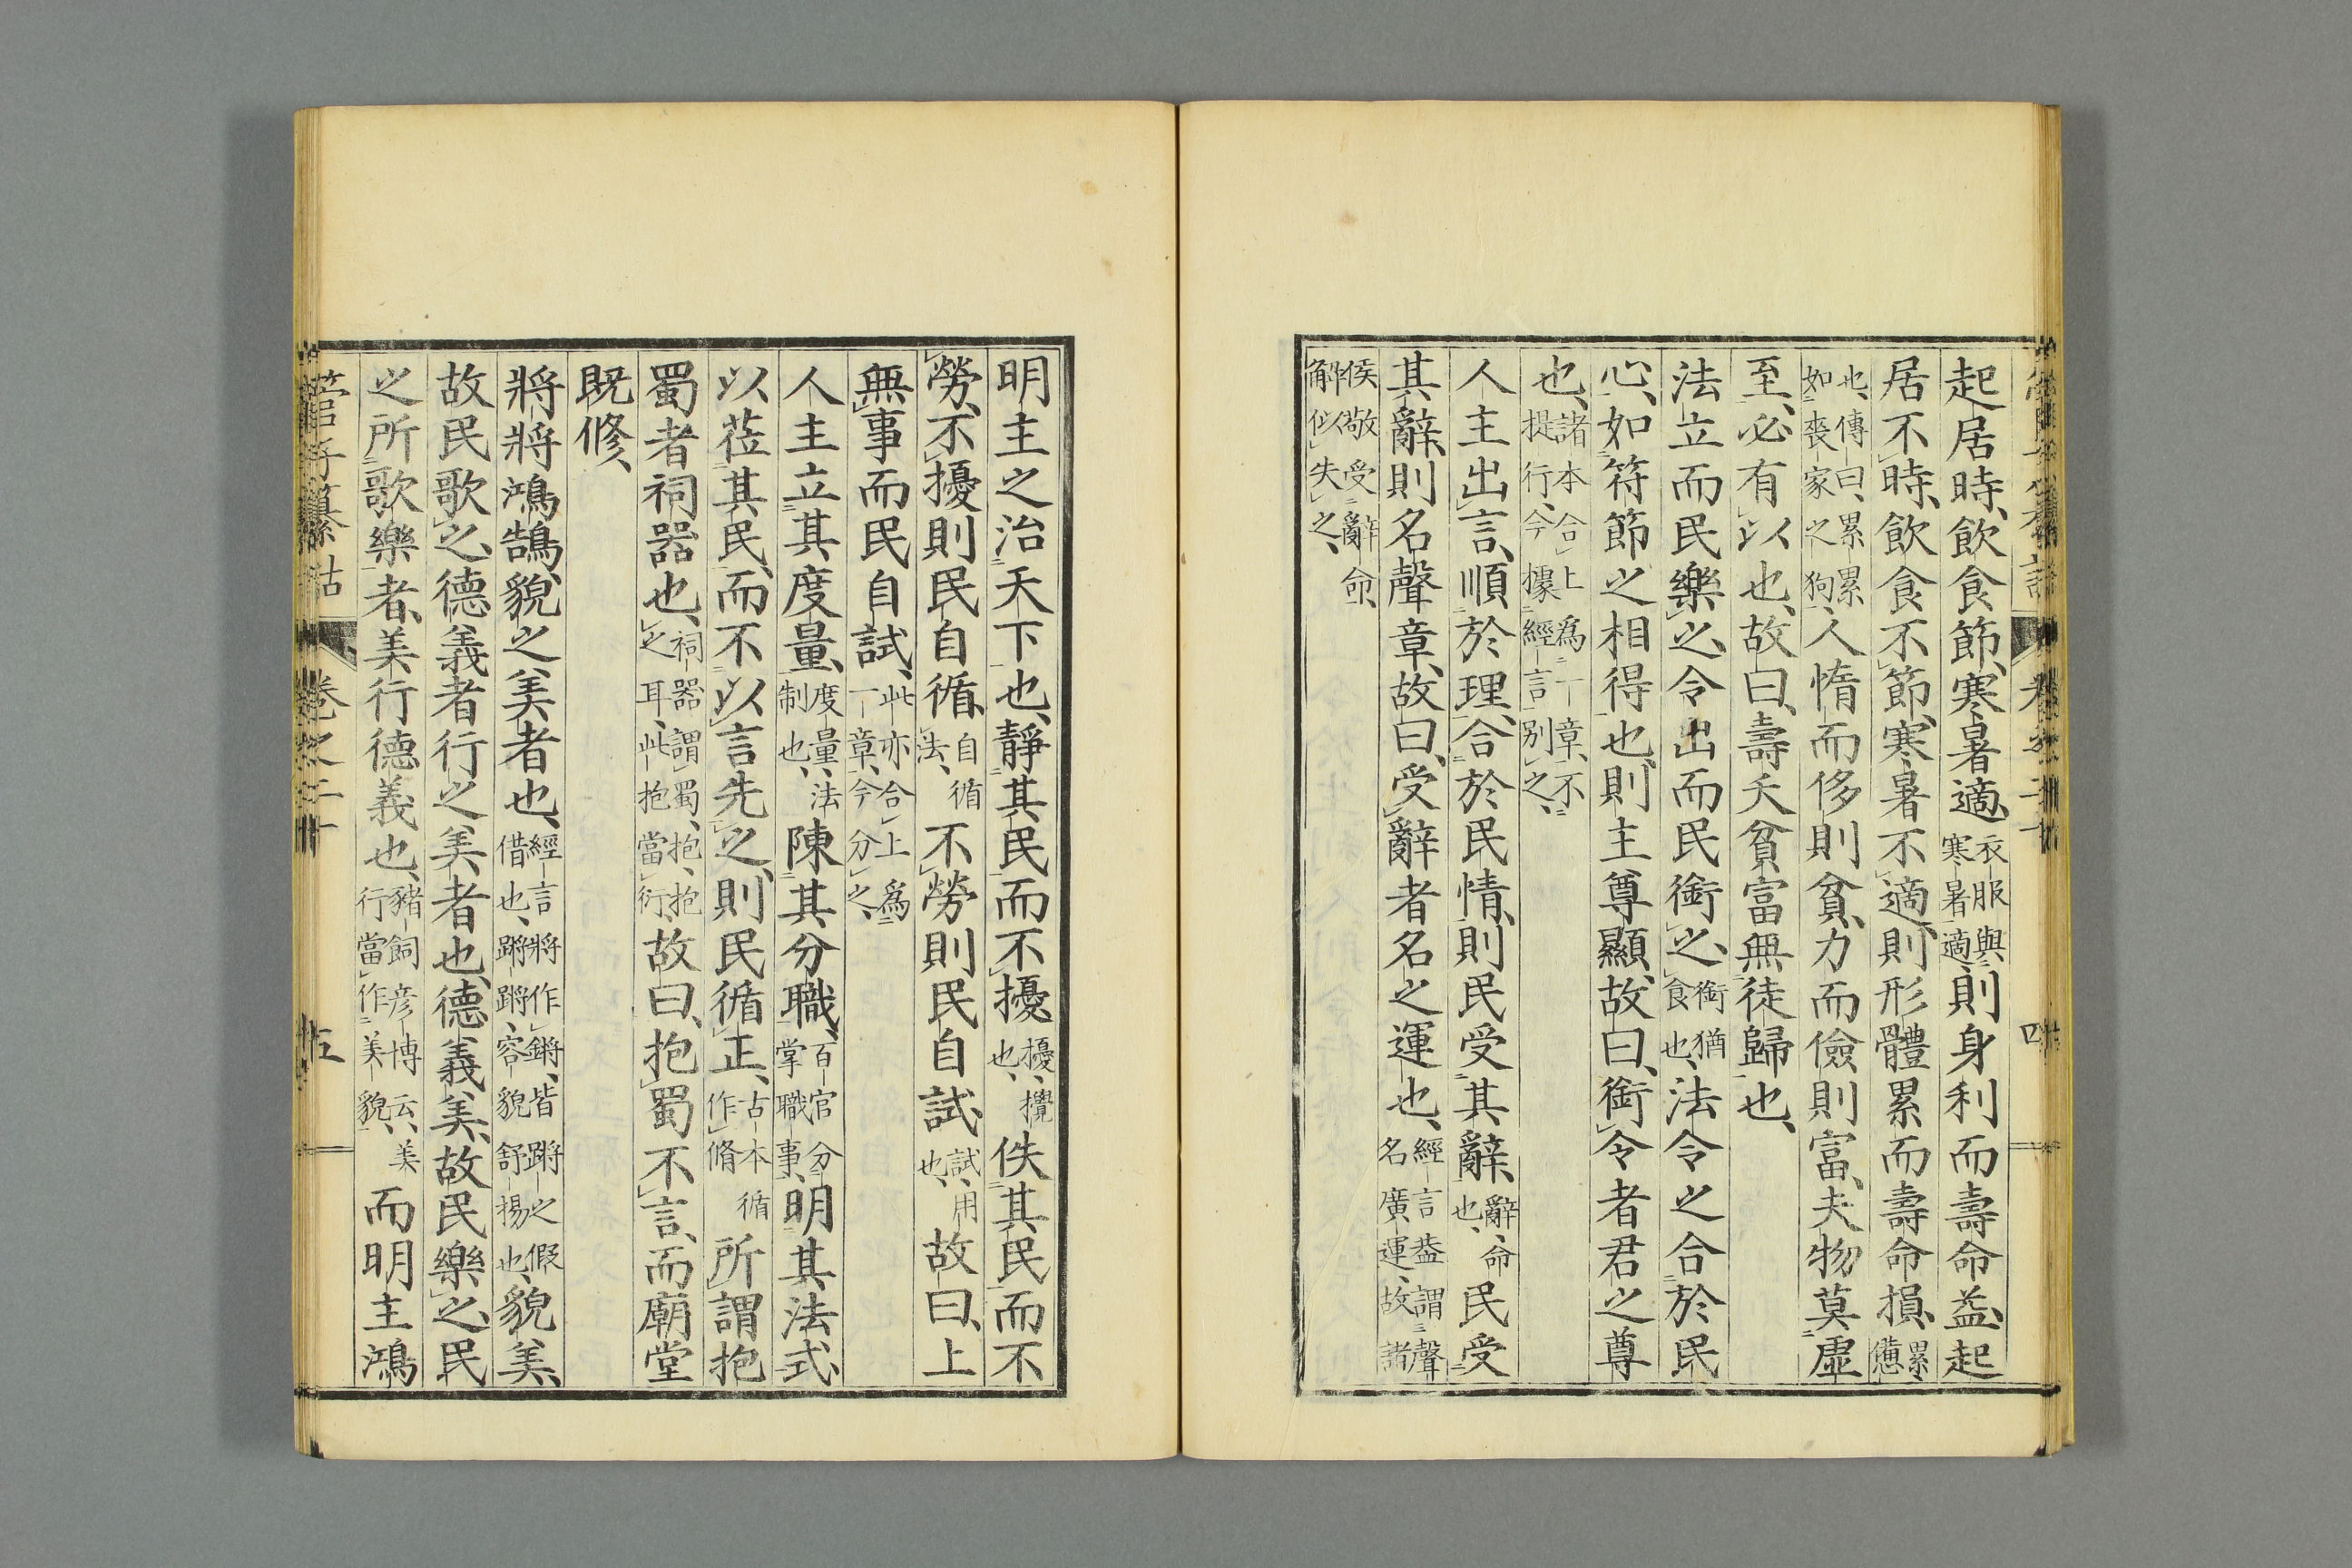 起居時、飲食節、寒暑適、衣服與寒暑適、則身利而壽命益、起
居不時、飲食不節、寒暑不適、則形體累而壽命損、累、憊
也、傳曰、累累如喪家之狗、人惰而侈則貧、力而儉則富、夫物莫虛
至、必有以也、故曰、壽夭貧富無徒歸也、
法立而民樂之、令出而民銜之、銜猶食也、法令之合於民
心、如符節之相得也、則主尊顯、故曰、銜令者君之尊
也、諸本合上爲一章、不提行、今據經言別之、
人主出言、順於理、合於民情、則民受其辭、辭、命也、民受
其辭、則名聲章、故曰、受辭者名之運也、經言葢謂聲名廣運、故諸
侯敬受辭命、解似失之、
明主之治天下也、靜其民而不擾、擾、攪也、佚其民而不
勞、不擾則民自循、自循法、不勞則民自試、試、用也、故曰、上
無事而民自試、此亦合上爲一章、今分之、
人主立其度量、度量、法制也、陳其分職、百官分掌職事、明其法式、
以莅其民、而不以言先之、則民循正、古本循作脩所謂抱
蜀者祠器也、祠器謂之蜀耳、此抱、抱當衍、故曰、抱蜀不言、而廟堂
既修、
將將鴻鵠、貌之美者也、經言將作鏘、皆蹡之假借也、蹡蹡、容貌舒揚也、貌美、
故民歌之、德義者行之美者也、德義美、故民樂之、民
之所歌樂者、美行德義也、豬飼彦博云、美行當作美貌、而明主鴻
管子纂詁 卷之二十 五